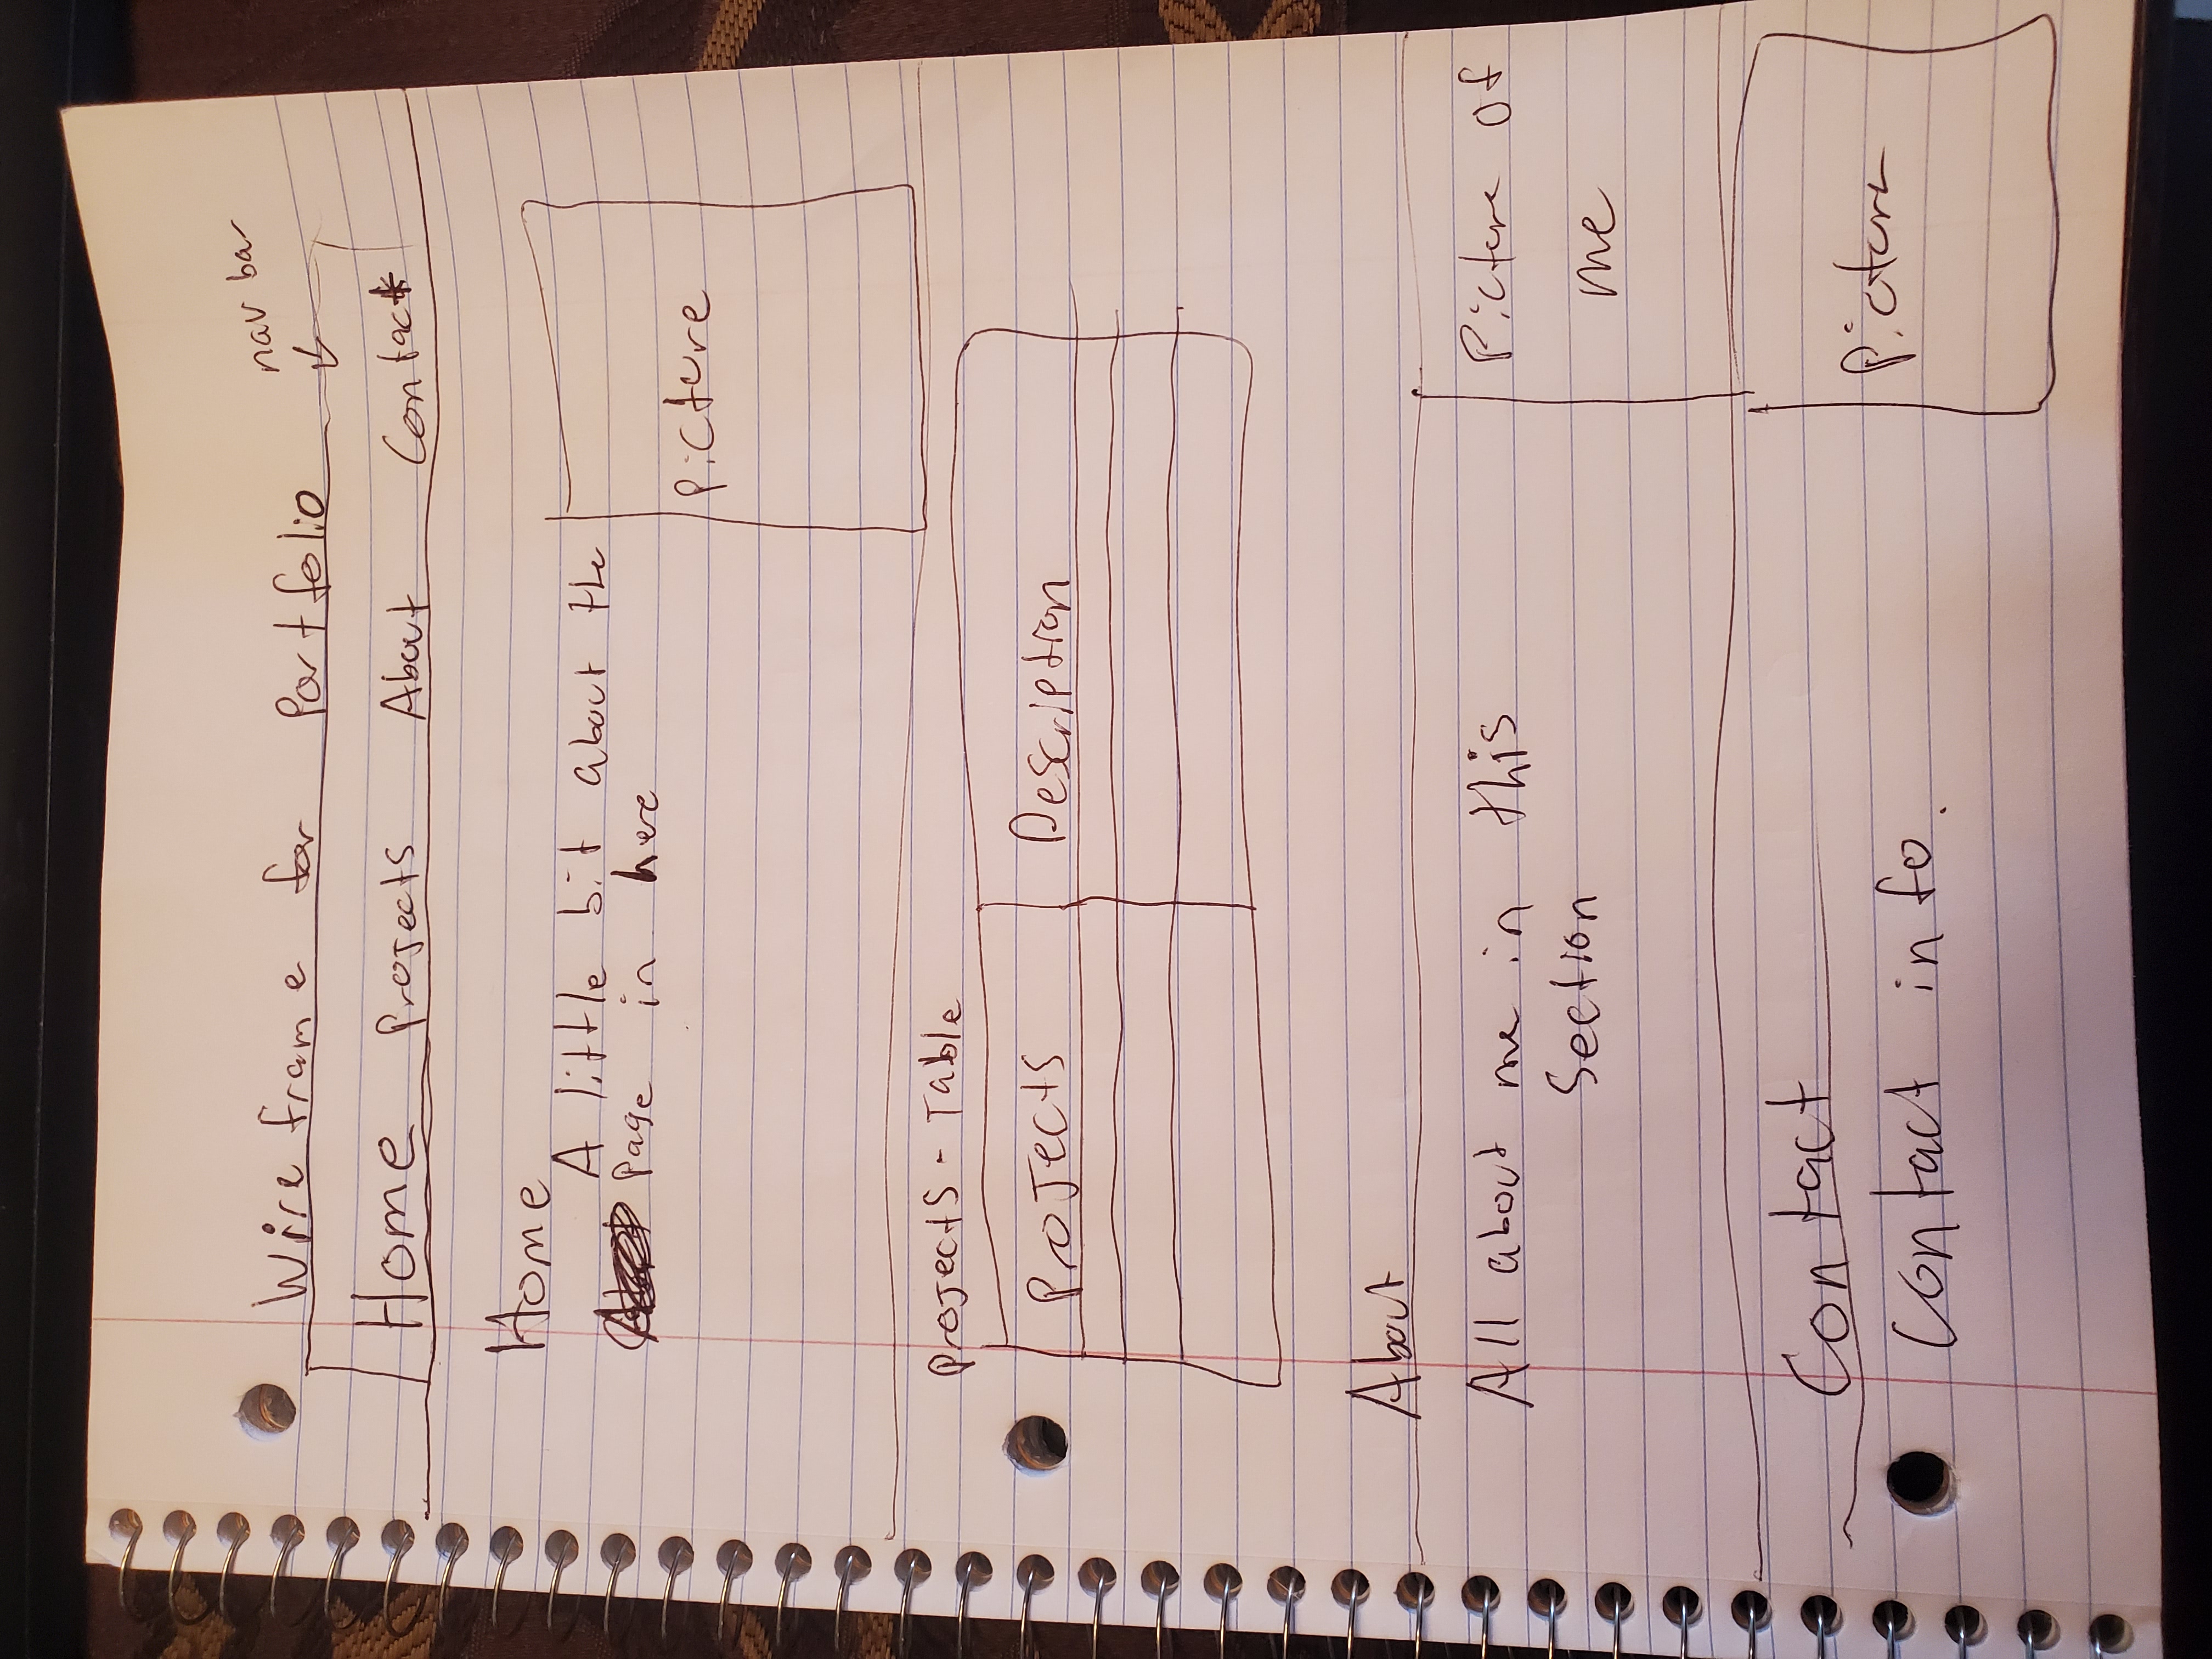 nav bar
Wire frame for Portfolio
Home Projects About Contact
Home
A little bit about the
Page in here
Picture
Projects - Table
Projects Description
About
All about me in this
Section
Picture of
me
Contact
Contact info.
Picture